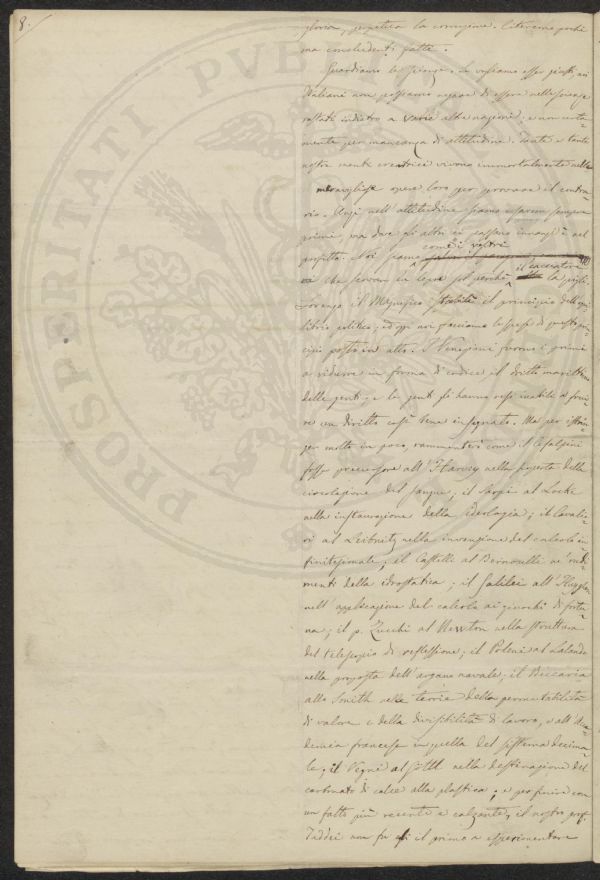 8.
gloria, perpetua la cognizione. Citeremo pochi
ma concludenti fatti.
Guardiamo le scienze. Se vogliamo esser giusti noi
Italiani non possiamo negare di essere nelle scienze
restati indietro a varie altre nazioni; e non certa-
mente per mancanza di attitudine. Tante e tante
nostre menti creatrici vivono immortalmente nelle
meravigliose opere loro per provare il contra-
rio. Anzi nell'attitudine siamo sempre
primi, ma dove gli altri ci passano innanzi è nel
profitto. Noi siamo come i veltri
che il cacciatore la pigli.
Lorenzo il Magnifico stabilì il principio dell'equi-
librio politico; ed oggi noi facciamo le spese di questo prin-
cipio posto in atto. I Veneziani furono i primi
a ridurre in forma di codice il dritto marittimo
delle genti; e le genti gli hanno resi inabili a frui-
re un diritto così bene insegnato. Ma per istrin-
ger molto in poco, rammenterò come il Cesalpini
fosse precursore all'Harvey nella scoperta della
circolazione del sangue; il Sarpi al Locke
nella instaurazione della ideologia; il Cavalie-
ri al Leibnitz nella invenzione del calcolo in-
finitesimale; il Castelli al Bernoulli ne' rudi-
menti della idrostatica; il Galilei all'Huyghens
nell'applicazione del calcolo ai giuochi di fortu-
na; il p. Zucchi al Newton nella struttura
del telescopio di riflessione; il Poleni al Lalande
nella proposta dell'argano navale; il Beccaria
allo Smith nella teoria della permutabilità
di valore e della divisibilità di lavoro, e all'Acca-
demia francese in quella del sistema decima-
le; il Vegni al nella destinazione del
carbonato di calce alla plastica; e per finire con
un fatto più recente e calzante, il nostro prof.
Taddei non fu egli il primo a esperimentare
PROSPERITATI PVBLI